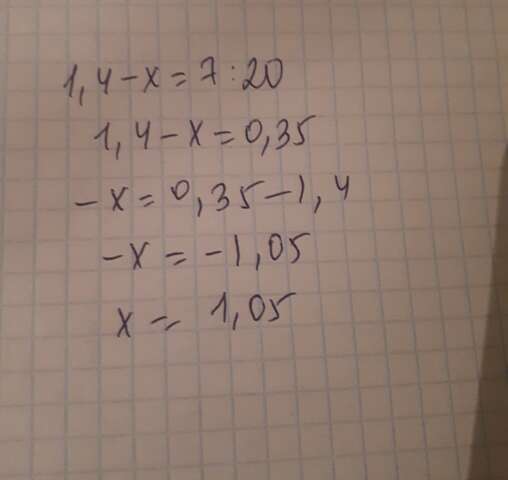 1,4-x=7:20
1,4-x=0,35
-x=0,35-1,4
-x=-1,05
x=1,05